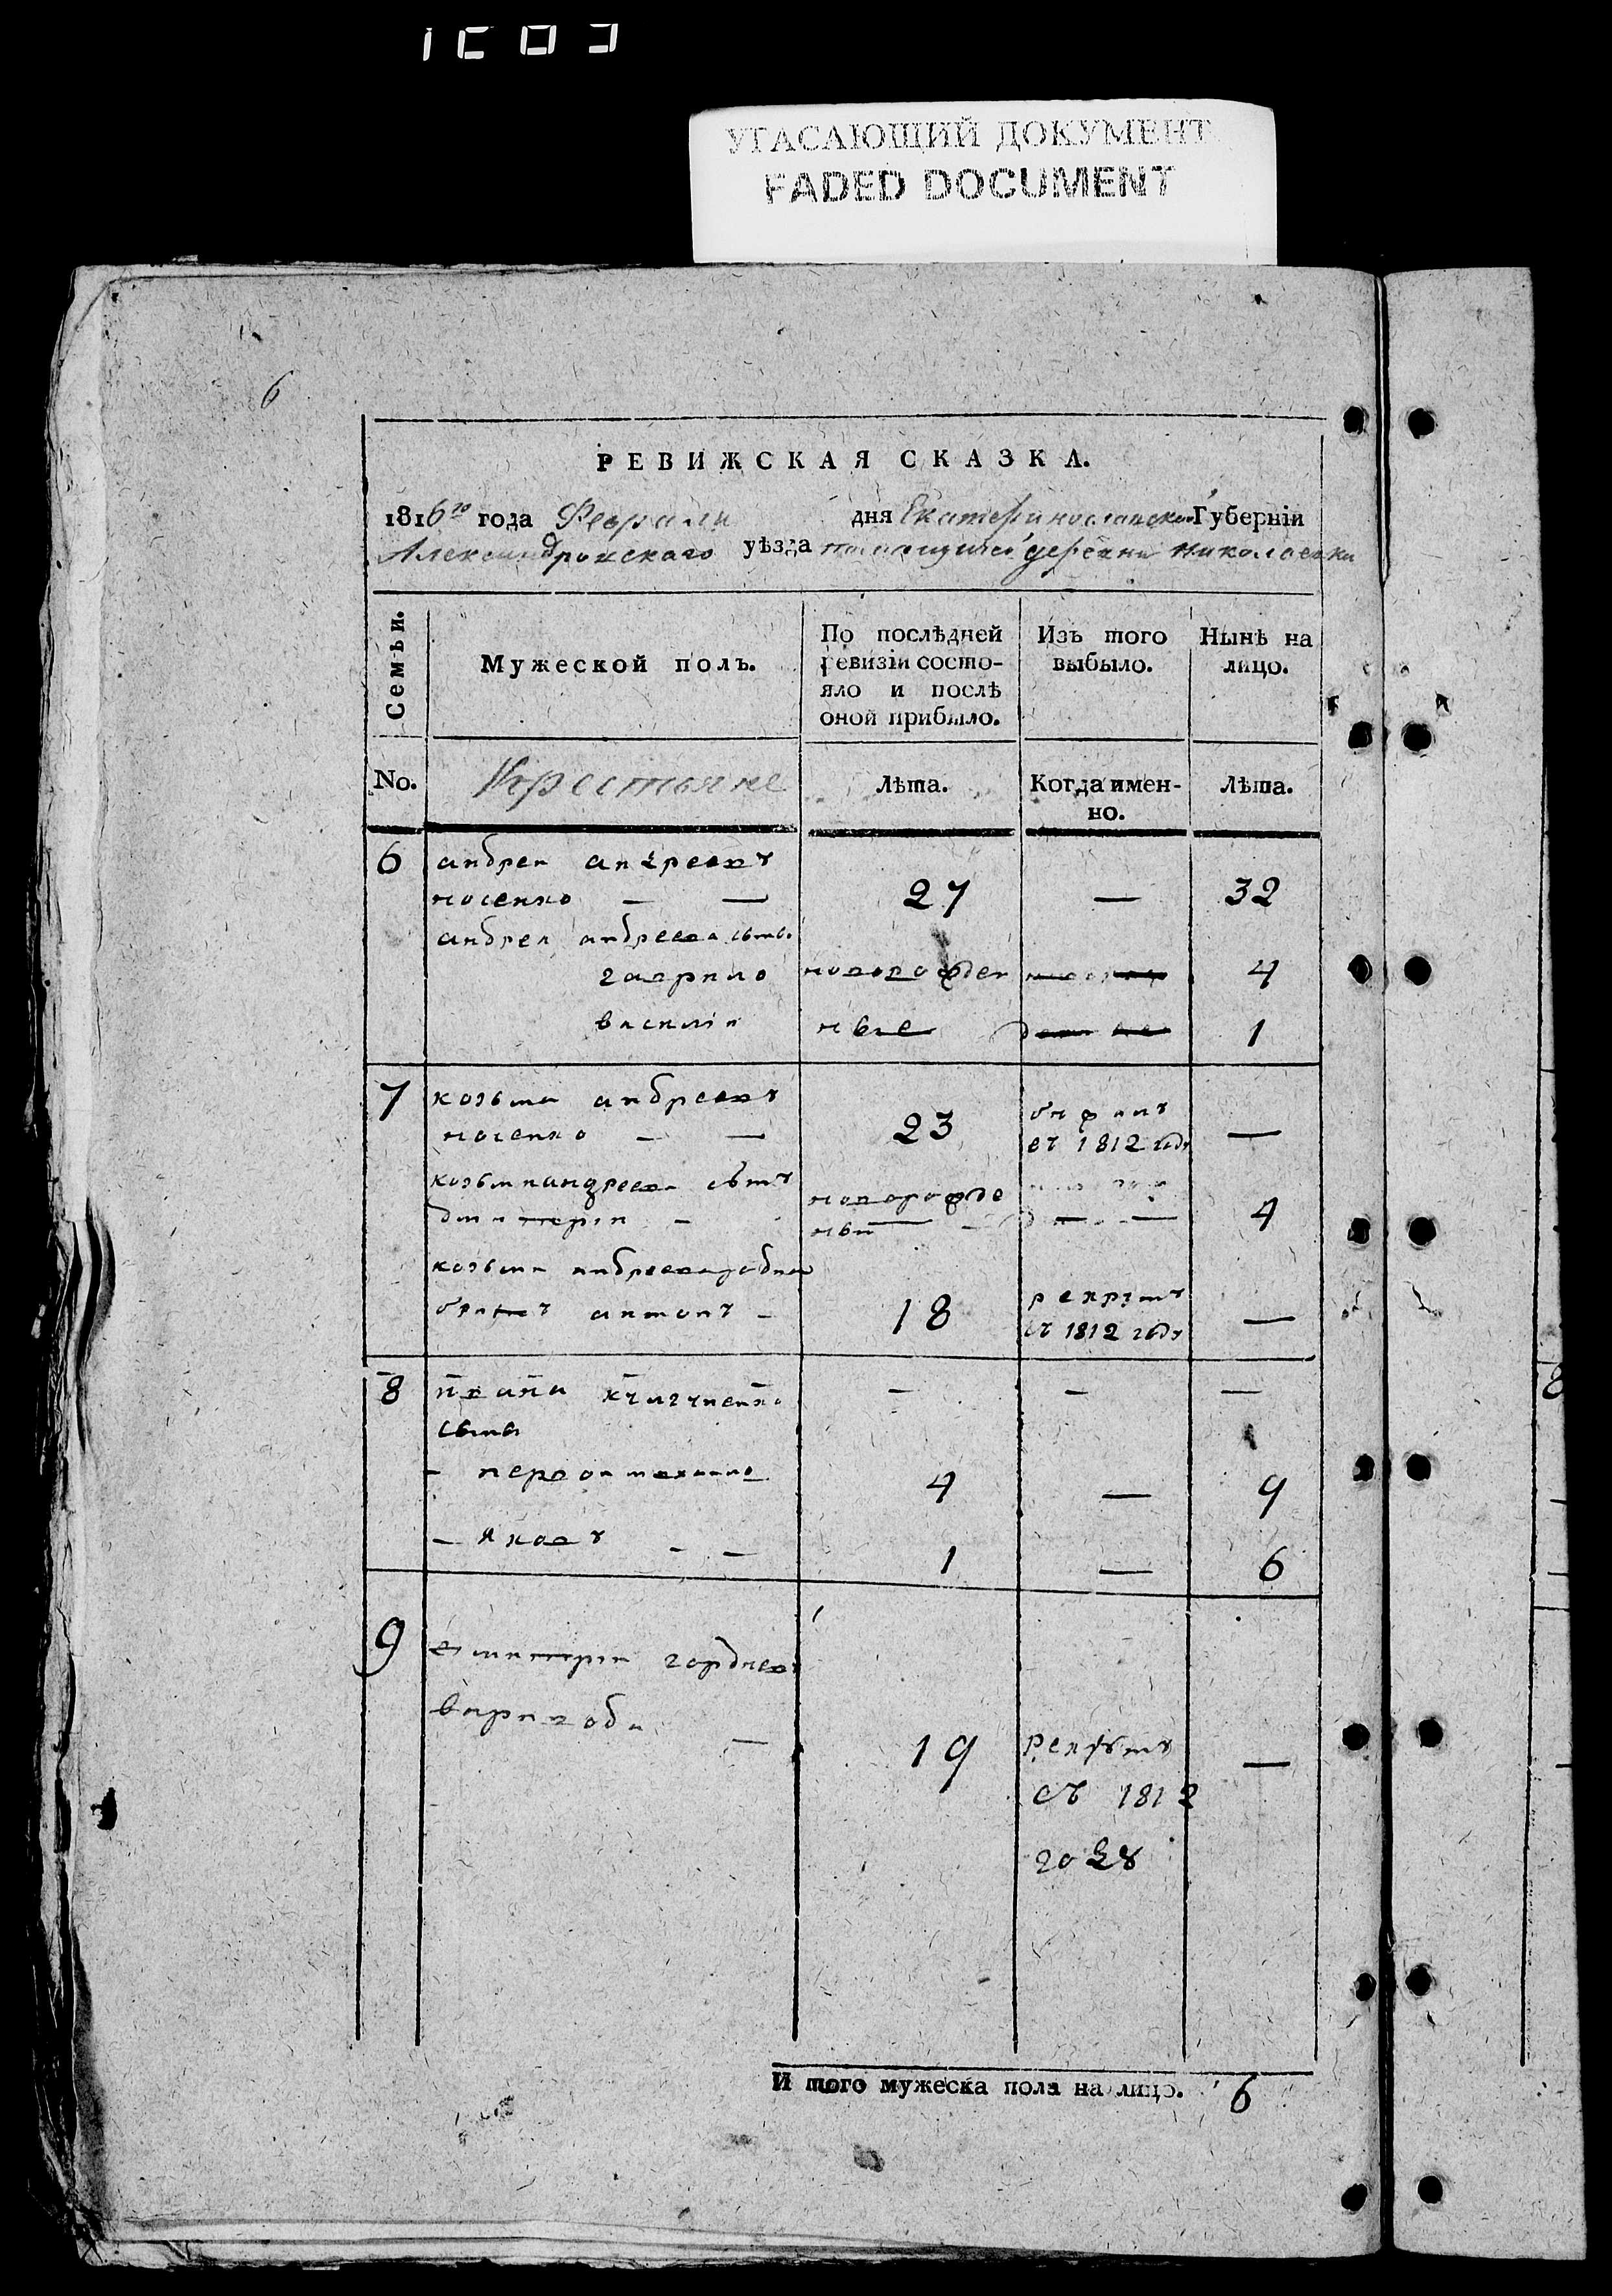 УГАСАЮЩИЙ ДОКУМЕНТ
FADED DOCUMENT
6
РЕВИЖСКАЯ СКАЗКА.
1816го года Февраля дня Екатеринославской Губернiи
Александровскаго уѣзда деревни Николаевки
Семьи.
Мужеской полъ.
По послѣдней ревизiи состояло и послѣ оной прибыло.
Изъ того выбыло.
Нынѣ на лицо.
No.
Крестьяне
Лѣта.
Когда именно.
Лѣта.
6 андреи андреевъ
носенко — — 27 — 32
андрея андреева
гаврило новорожден 4
василiи ные 1
7 козьма андреевъ
носенко — — 23 съ 1812 году —
козьми андреева сынъ
дмитерiи — новорожде ный 4
козьми андреева родной
братъ антонъ — 18 рекрутъ съ 1812 году —
8 ивана — — —
сыны
- первой михаило 4 — 9
- яковъ - - 1 — 6
9 дмитерiи гордиевъ
— 19 рекрутъ —
съ 1812
году
И того мужеска пола на лицо. 6